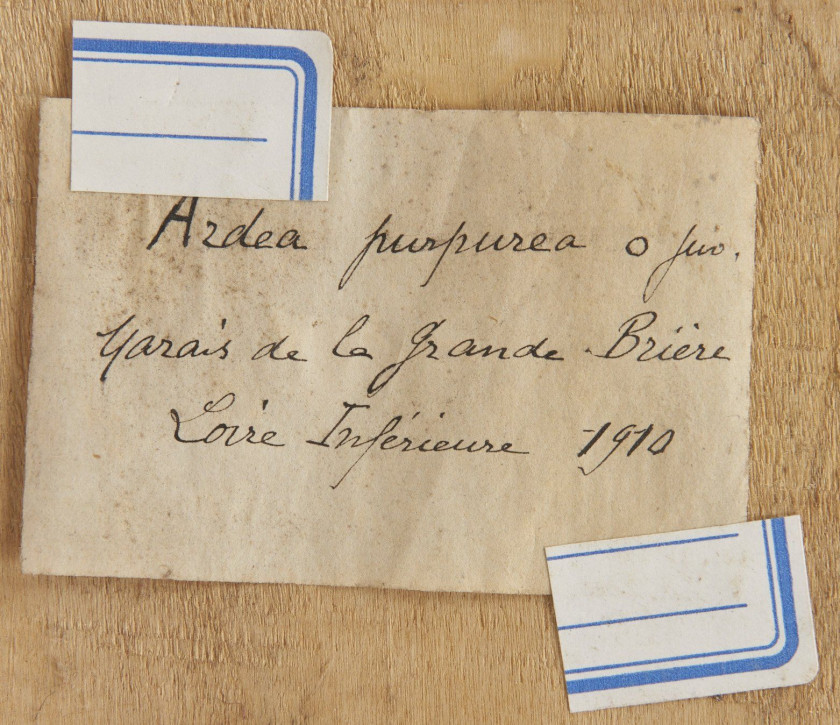 Ardea purpurea o juv.
Marais de la Grande Brière
Loire Inférieure 1910